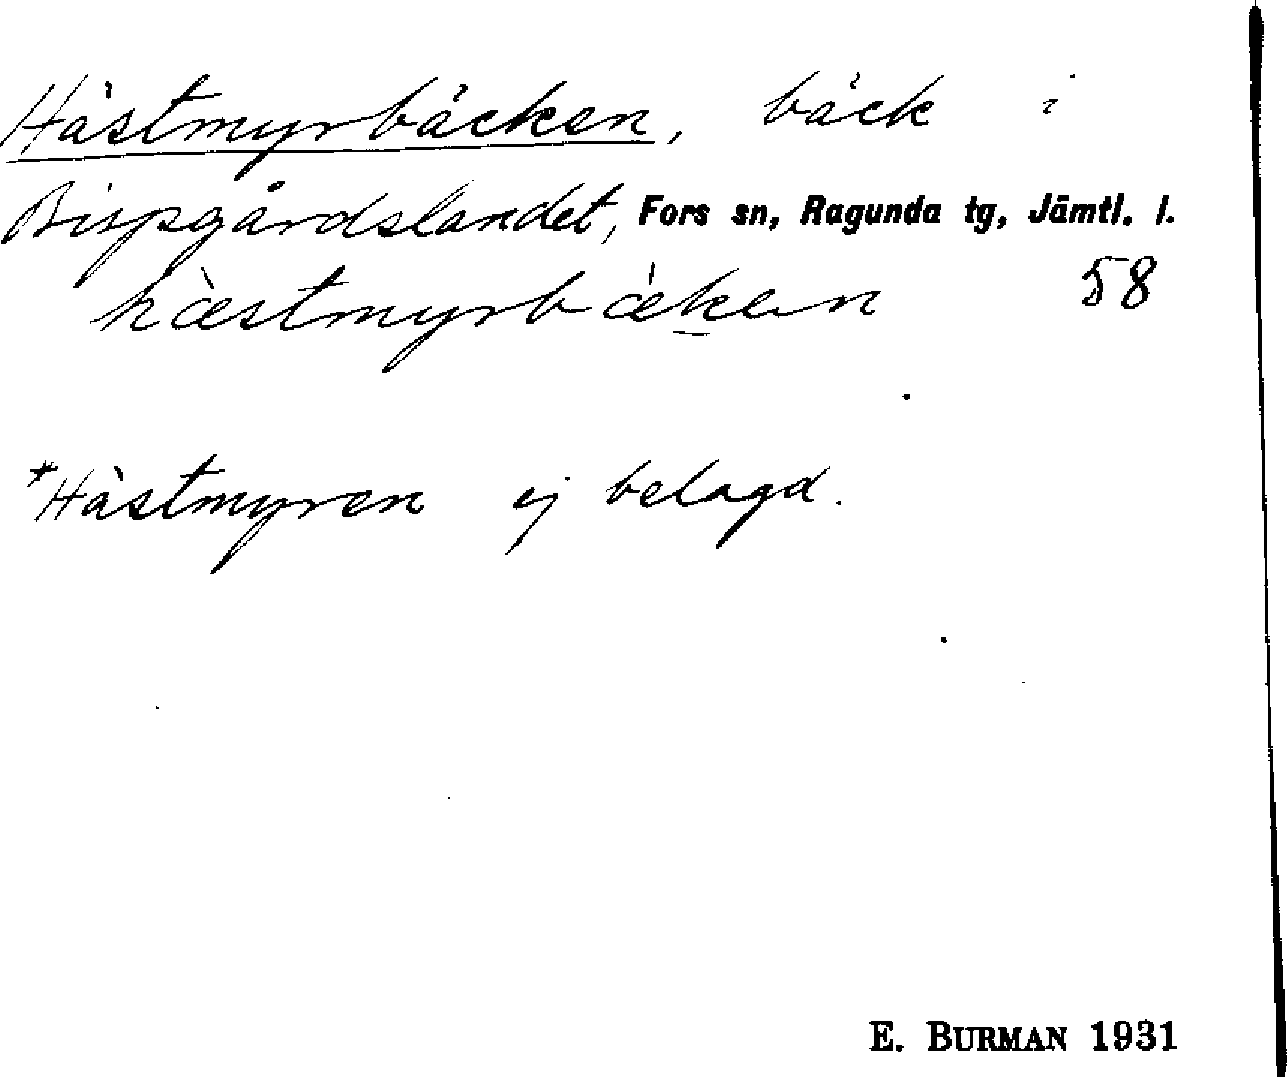 Hästmyrbäcken, bäck i
Bispgårdslandet, Fors sn, Ragunda tg, Jämtl. l.
hæ̀stmyrbǽken 58
*Hästmyren ej belagd.
E. BURMAN 1931